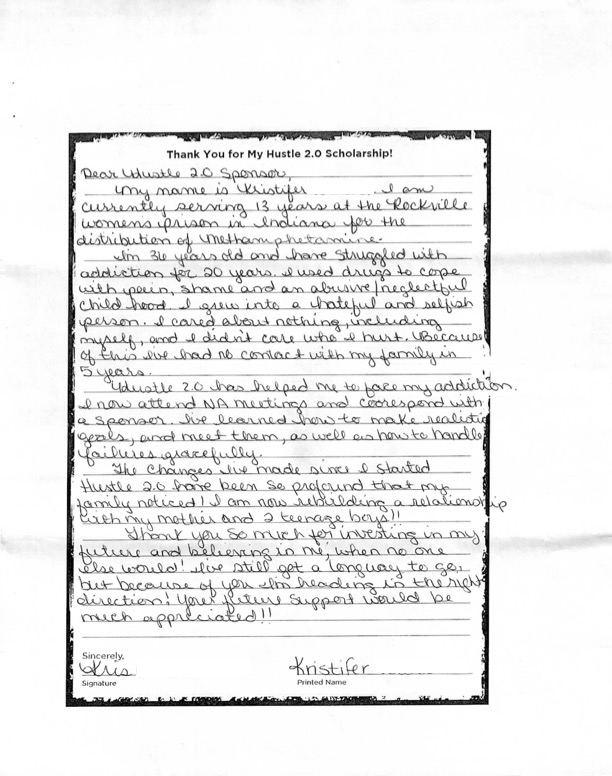 Thank You for My Hustle 2.0 Scholarship!
Dear Hustle 2.0 Sponsor,
My name is Kristifer I am
currently serving 13 years at the Rockville
womens prison in Indiana for the
distribution of Methamphetamine.
Im 36 years old and have struggled with
addiction for 20 years. I used drugs to cope
with pain, shame and an abusive/neglectful
childhood. I grew into a hateful and selfish
person. I cared about nothing, including
myself, and I didn't care who I hurt. Because
of this I've had no contact with my family in
5 years.
Hustle 2.0 has helped me to face my addiction.
I now attend NA meetings and coorespond with
a sponsor. I've learned how to make realistic
goals, and meet them, as well as how to handle
failures gracefully.
The changes I've made since I started
Hustle 2.0 have been so profound that my
family noticed! I am now rebuilding a relationship
with my mother and 2 teenage boys!!
Thank you so much for investing in my
future and believing in me, when no one
else would! I've still got a longway to go,
but because of you Im heading in the right
direction! Your future support would be
much appreciated!!
Sincerely,
Kris Kristifer
Signature Printed Name